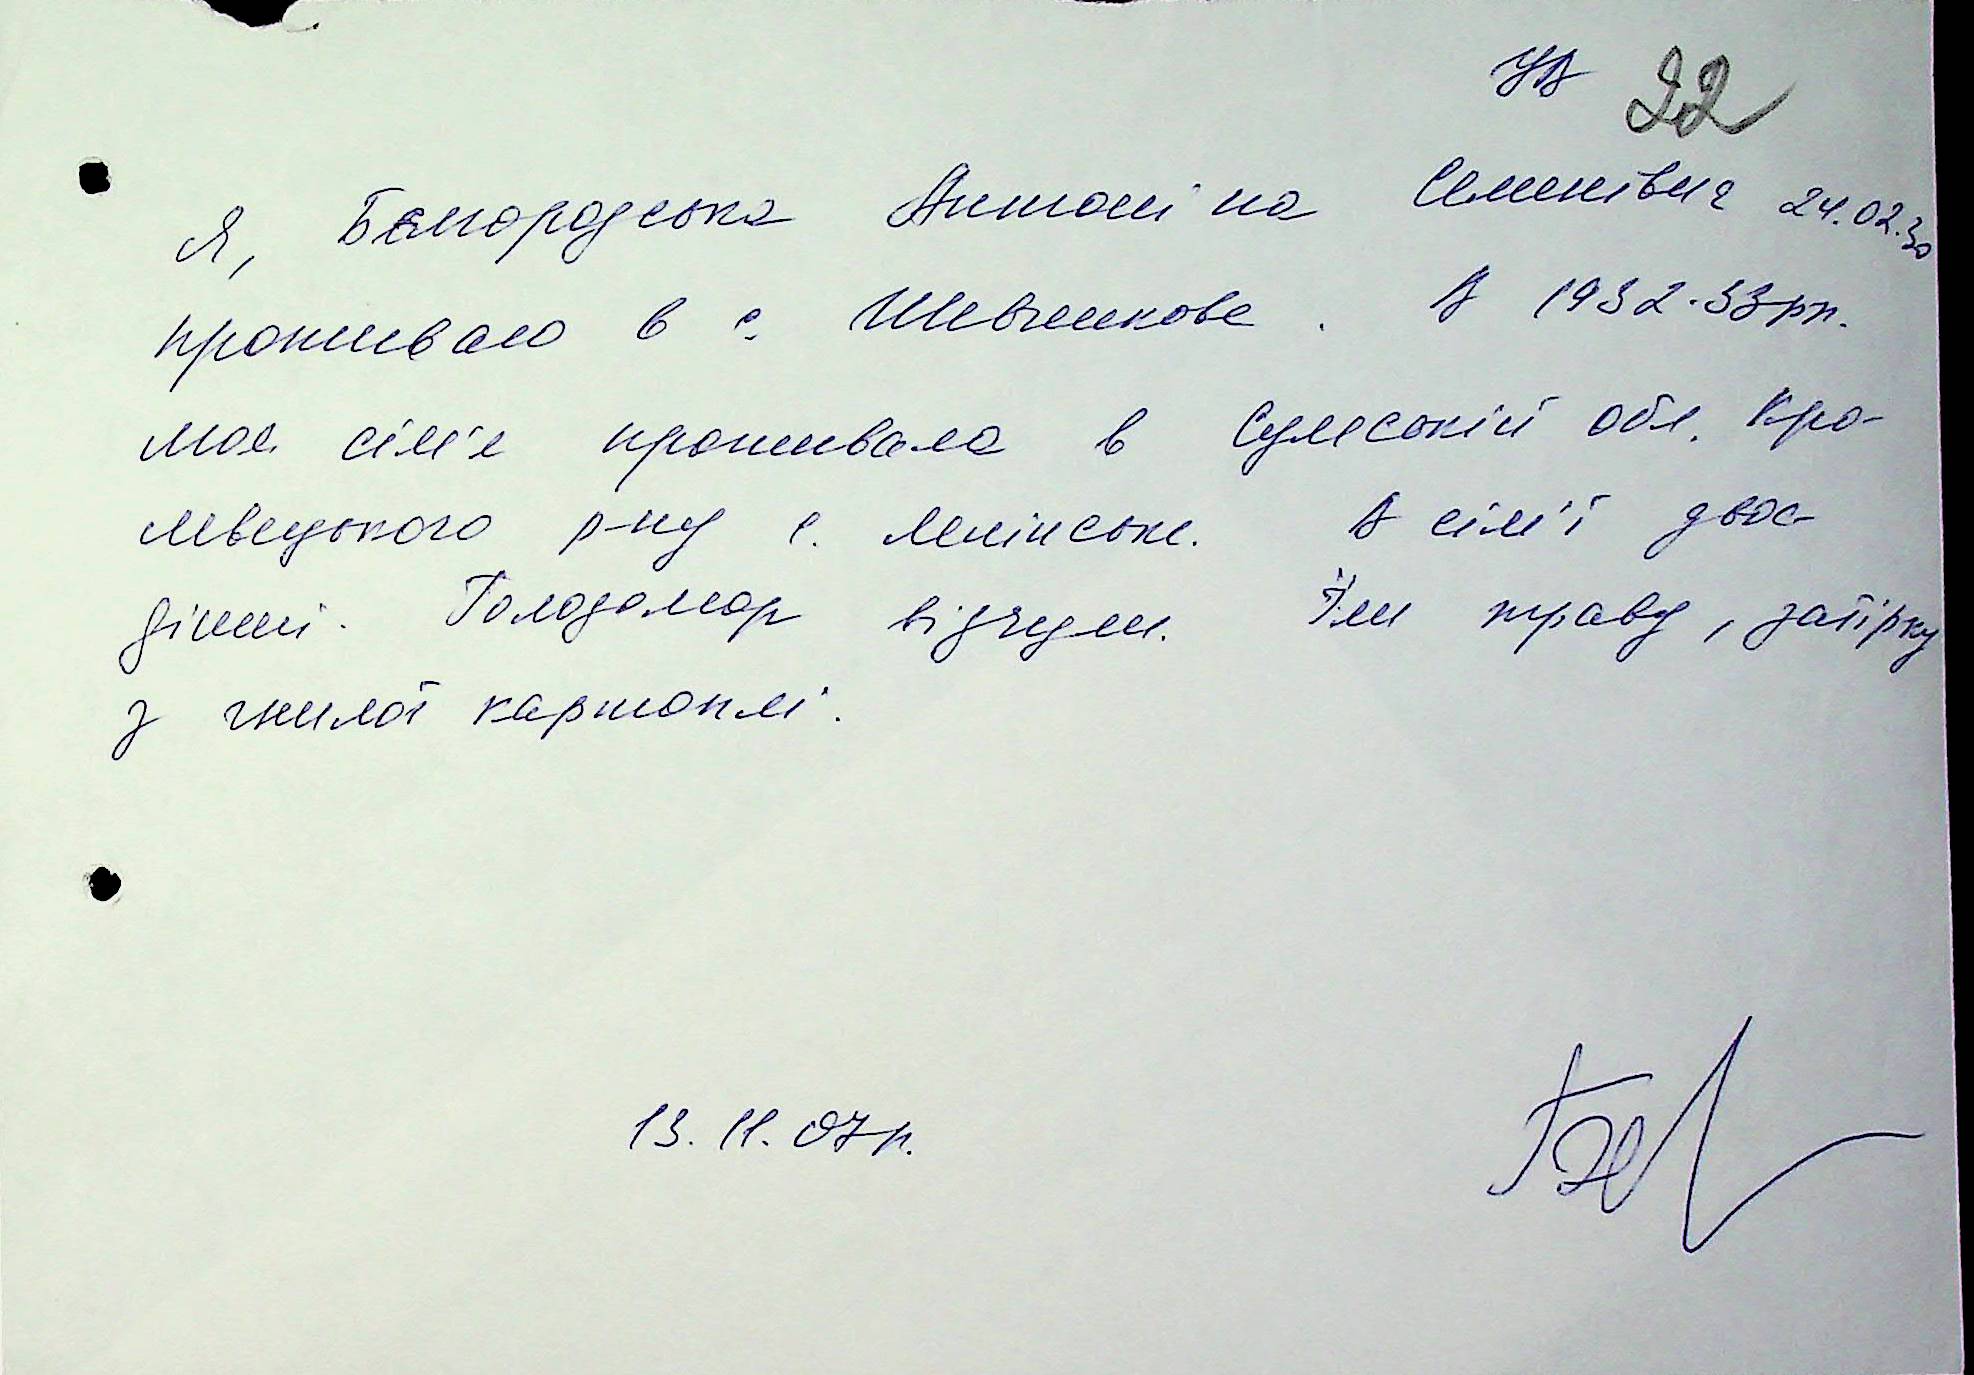 УВ 22
Я, Белгородська Антоніна Семенівна 24.02.30
проживаю в с. Шевченкове. В 1932-33рр.
моя сім'я проживала в Сумській обл. Кро-
левецького р-ну с. Ленінське. В сім'ї двоє
дітей. Голодомор відчули. Їли траву, затірку
з гнилої картоплі.
13.11.07р.